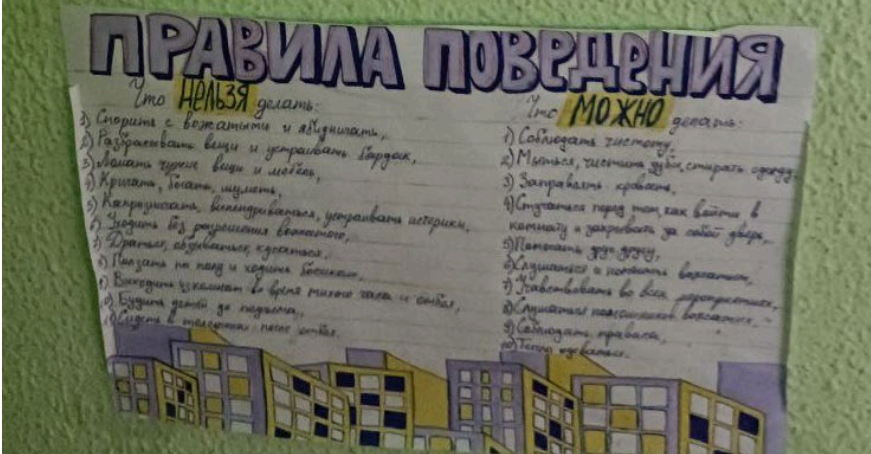 ПРАВИЛА ПОВЕДЕНИЯ
Что НЕЛЬЗЯ делать:
1) Спорить с вожатыми и ябедничать,
2) Разбрасывать вещи и устраивать бардак,
3) Ломать чужие вещи и мебель,
4) Кричать, бегать, шуметь,
5) Капризничать, выпендриваться, устраивать истерики,
6) Уходить без разрешения вожатого,
7) Драться, обзываться, кусаться,
8) Ползать по полу и ходить босиком,
9) Выходить из комнат во время тихого часа и отбоя,
10) Будить детей до подъёма,
11) Сидеть в телефонах после отбоя.
Что МОЖНО делать:
1) Соблюдать чистоту,
2) Мыться, чистить зубы, стирать одежду,
3) Заправлять кровать,
4) Стучаться перед тем, как войти в
комнату и закрывать за собой дверь,
5) Помогать друг другу,
6) Слушаться и помогать вожатым,
7) Учавствовать во всех мероприятиях,
8) Слушаться помощников вожатых,
9) Соблюдать правила,
10) Тепло одеваться.